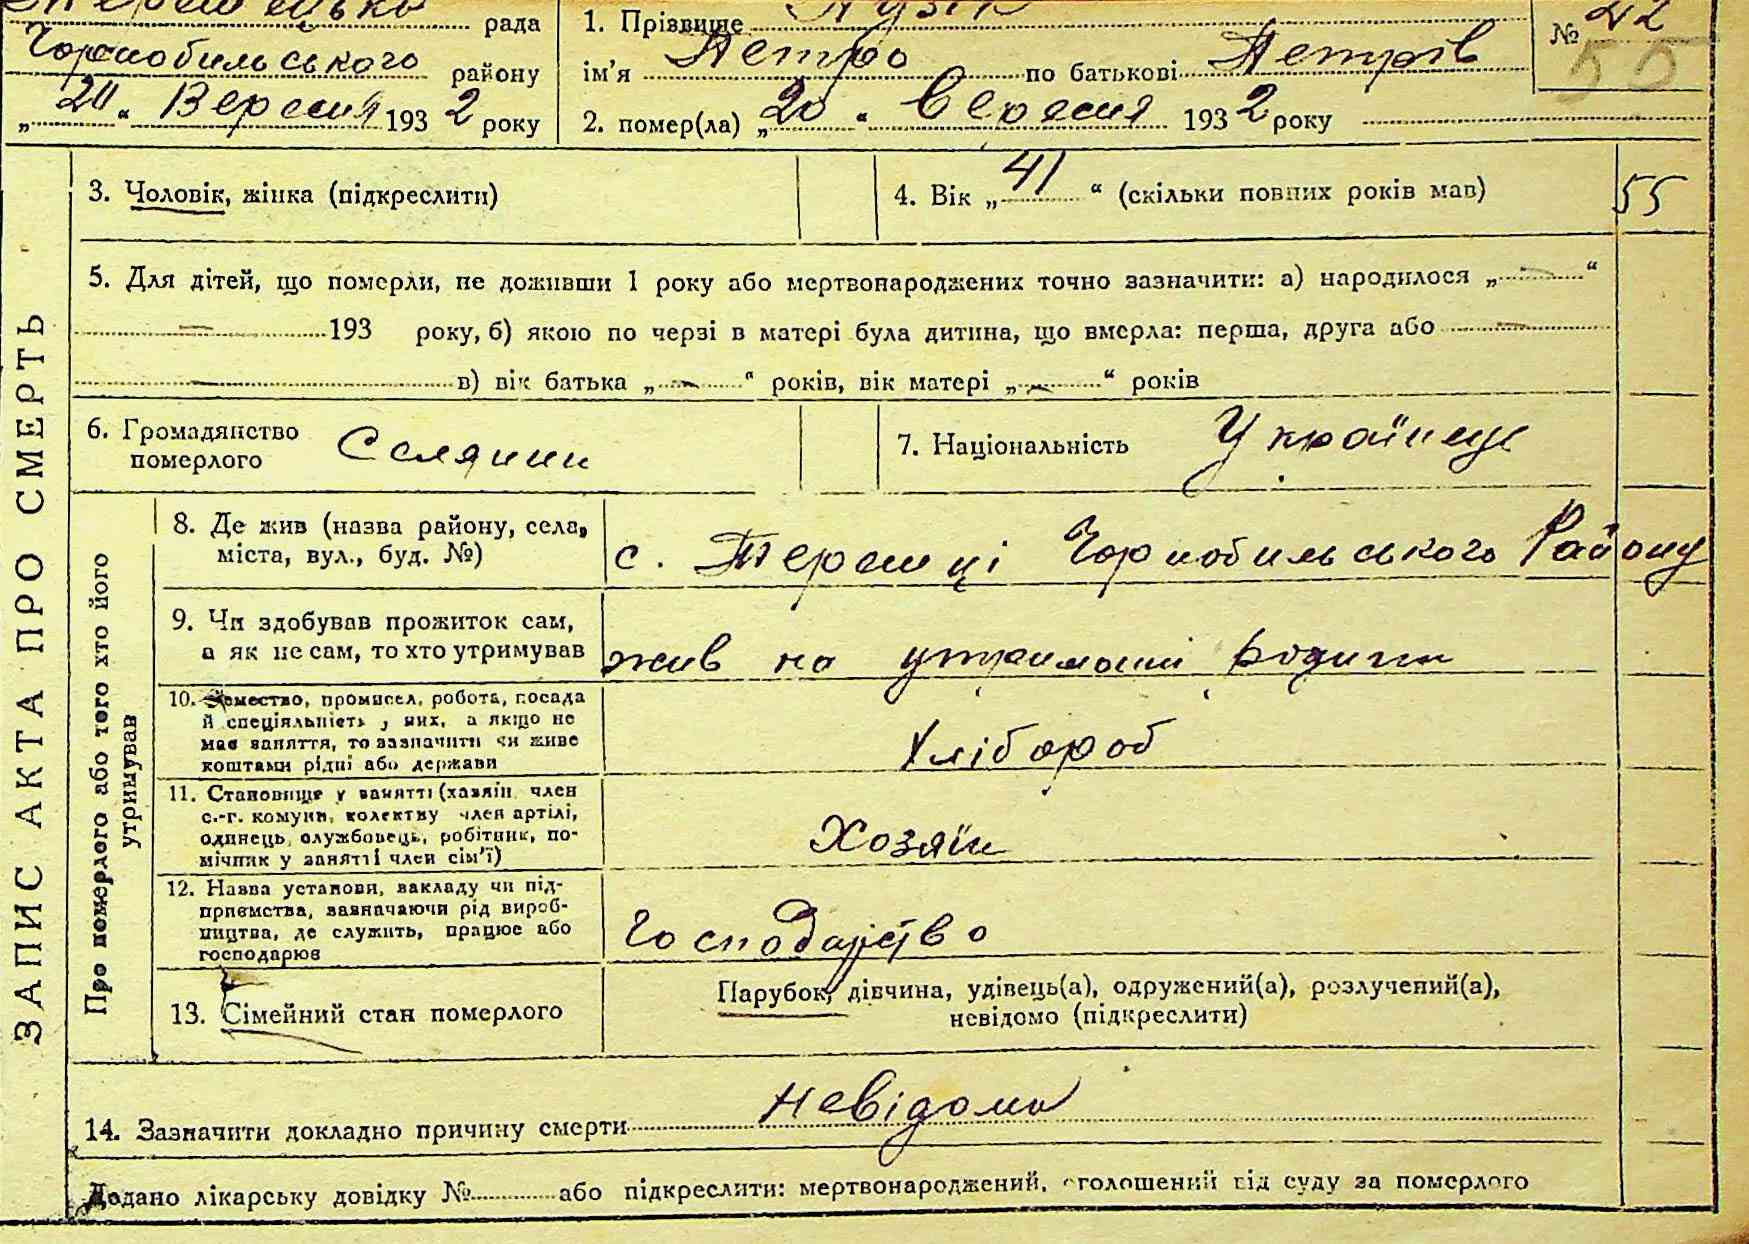 рада
1. Прізвище
№ 22
55
Чорнобильського району
ім'я Петро по батькові Петрів
„20“ Вересня 1932 року
2. помер(ла) „20“ Вересня 1932 року
ЗАПИС АКТА ПРО СМЕРТЬ
3. Чоловік, жінка (підкреслити)
4. Вік „41“ (скільки повних років мав)
55
5. Для дітей, що померли, не доживши 1 року або мертвонароджених точно зазначити: а) народилося „—“
— 193 року, б) якою по черзі в матері була дитина, що вмерла: перша, друга або —
— в) вік батька „—“ років, вік матері „—“ років
6. Громадянство
померлого
Селянин
7. Національність Українець
Про померлого або того хто його
утримував
8. Де жив (назва району, села,
міста, вул., буд. №)
с. Теремці Чорнобильського Району
9. Чи здобував прожиток сам,
а як не сам, то хто утримував
жив на утриманні родини
10. Ремество, промисел, робота, посада
й спеціяльність у них, а якщо не
має заняття, то зазначити чи живе
коштами рідні або держави
Хлібороб
11. Становище у занятті (хазяїн, член
с.-г. комуни, колектву член артілі,
одинець, службовець, робітник, по-
мічник у занятті член сім'ї)
Хозяїн
12. Назва установи, закладу чи під-
приємства, зазначаючи рід вироб-
ництва, де служить, працює або
господарює
Господарство
13. Сімейний стан померлого
Парубок, дівчина, удівець(а), одружений(а), розлучений(а),
невідомо (підкреслити)
14. Зазначити докладно причину смерти невідома
Додано лікарську довідку № або підкреслити: мертвонароджений, оголошений від суду за померлого